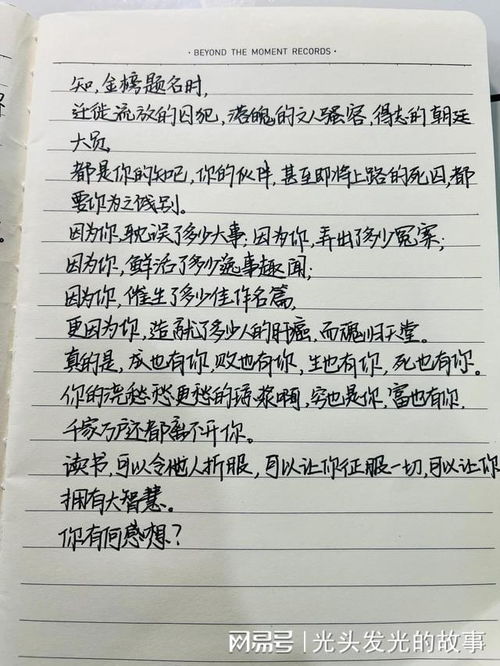 · BEYOND THE MOMENT RECORDS ·
知,金榜题名时,
迁徙流放的囚犯,落魄的文人骚客,得志的朝廷
大员,
都是你的知己,你的伙伴,甚至即将上路的死囚,都
要你为之饯别。
因为你,耽误了多少大事;因为你,弄出了多少冤案;
因为你,鲜活了多少逸事趣闻;
因为你,催生了多少佳作名篇,
更因为你,造就了多少人的肝癌,而魂归天堂。
真的是,成也有你,败也有你,生也有你,死也有你。
你的浇愁愁更愁的琼浆啊,穷也是你,富也有你,
千家万户还都离不开你。
读书,可以令他人折服,可以让你征服一切,可以让你
拥有大智慧。
你有何感想?
网易号 | 光头发光的故事